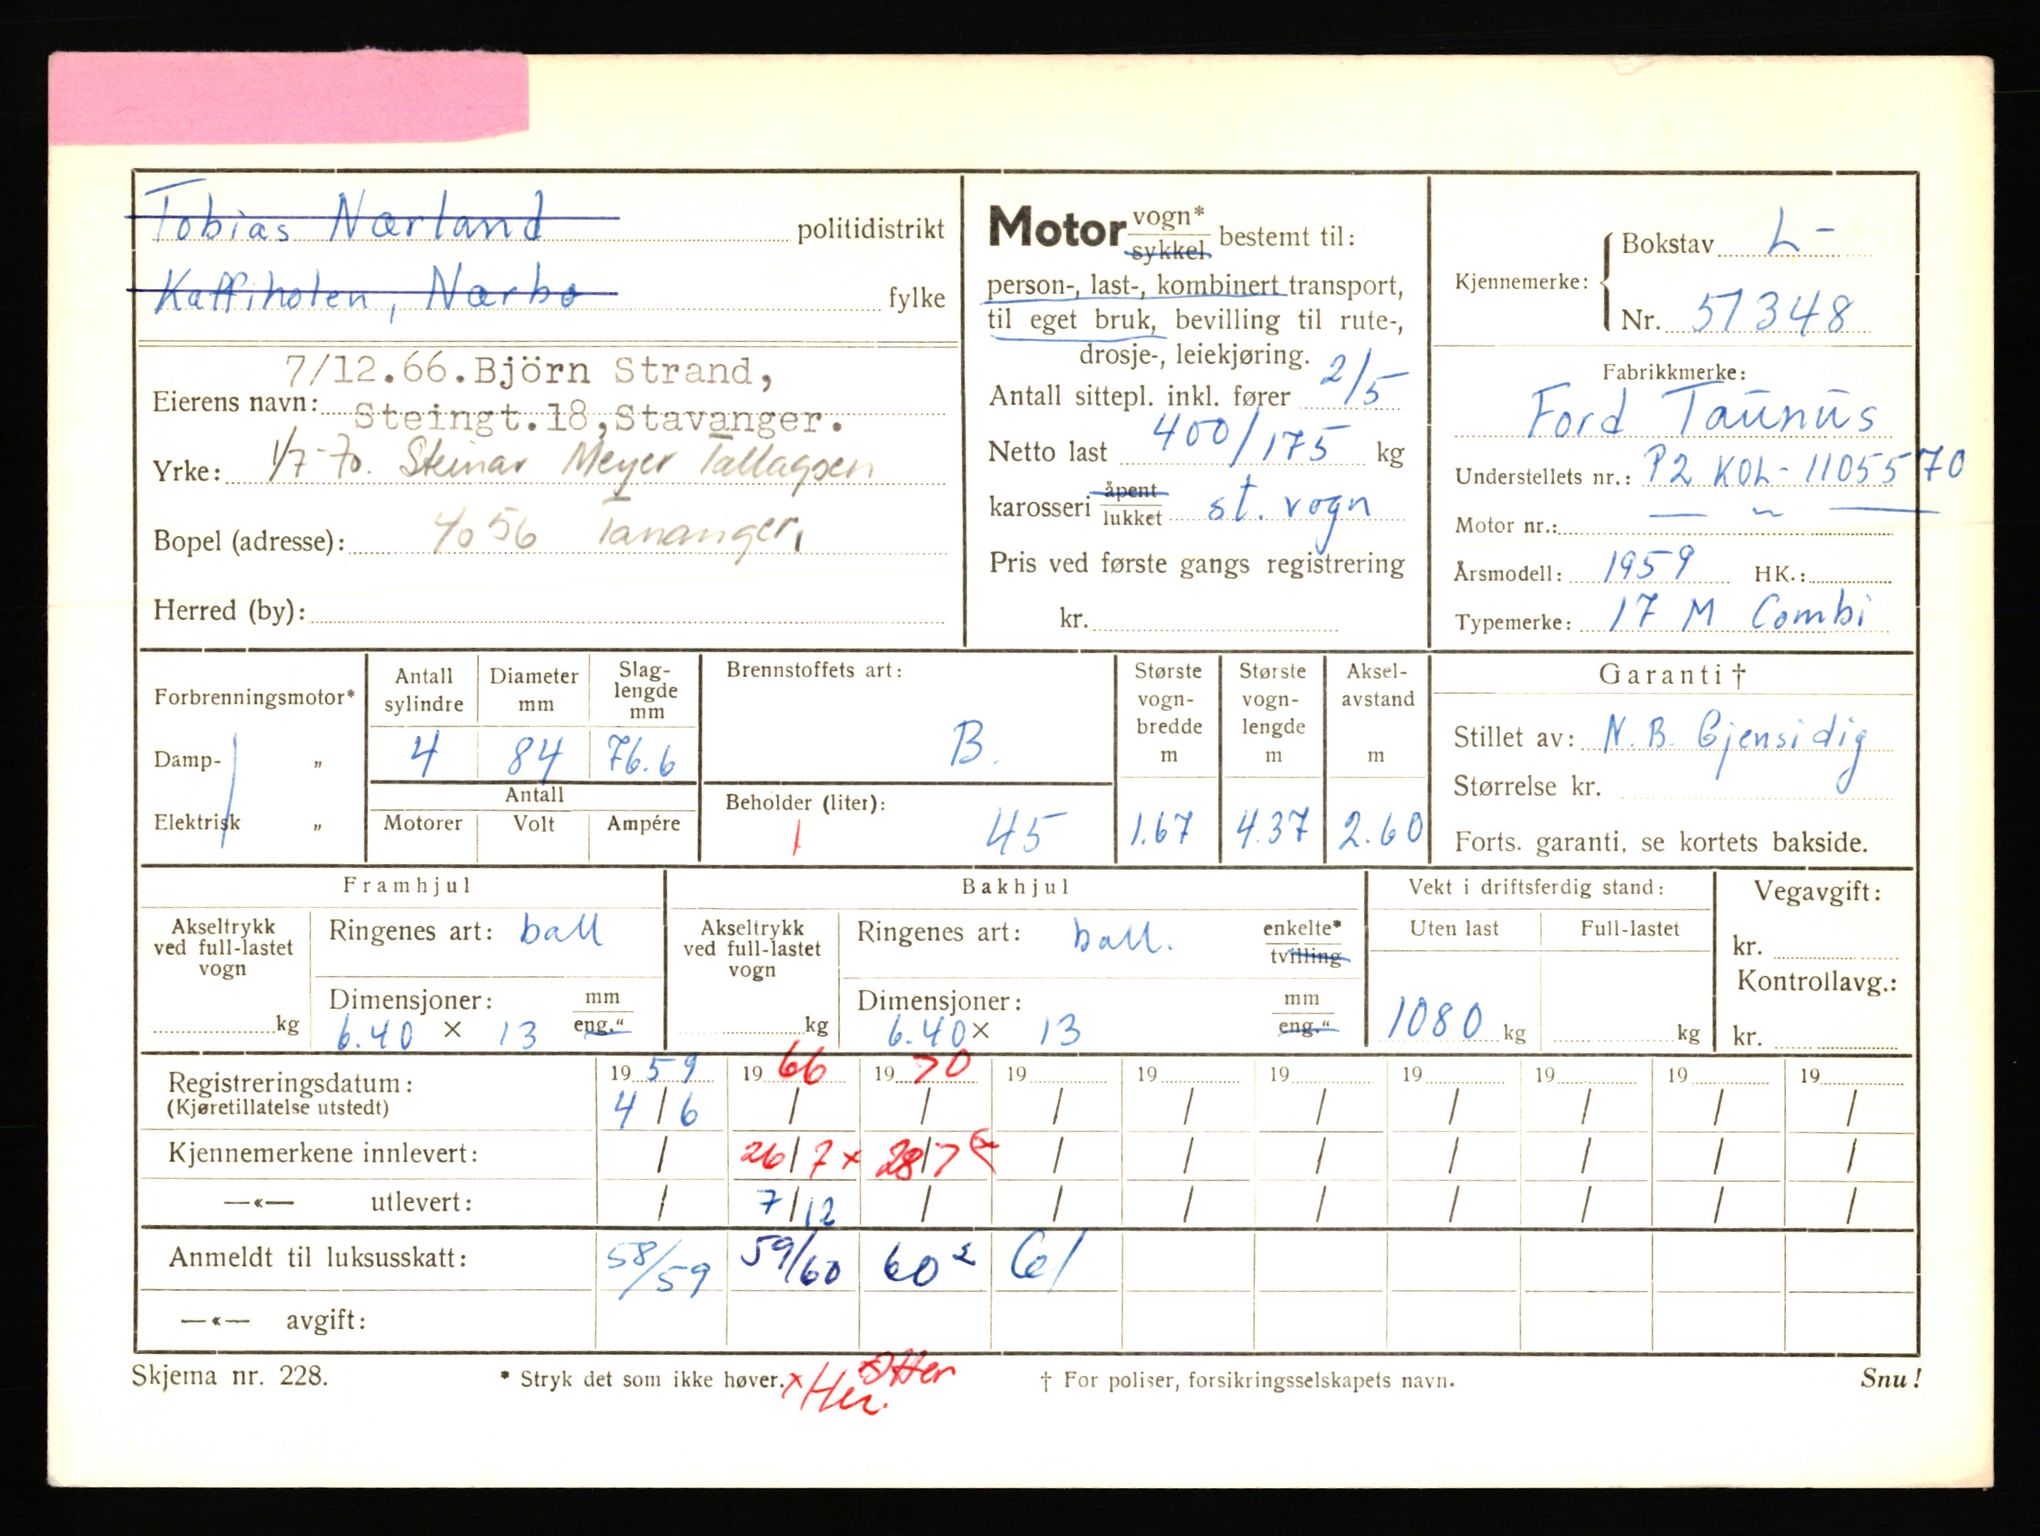 Tobias Nærland politidistrikt
Kaffiholen, Nærbø fylke
7/12.66. Björn Strand,
Eierens navn: Steingt.18, Stavanger.
Yrke: 1/7-70. Steinar Meyer Tallagsen
Bopel (adresse): 4056 Tananger,
Herred (by):
Motor vogn* sykkel bestemt til:
person-, last-, kombinert transport,
til eget bruk, bevilling til rute-,
drosje-, leiekjøring.
Antall sittepl. inkl. fører 2/5
Netto last 400/175 kg
karosseri åpent lukket st. vogn
Pris ved første gangs registrering
kr.
Kjennemerke: Bokstav L-
Nr. 51348
Fabrikkmerke:
Ford Taunus
Understellets nr.: P2 KOL-1105570
Motor nr.: — " —
Årsmodell: 1959 HK.:
Typemerke: 17 M Combi
Forbrenningsmotor*
Damp- „
Elektrisk „
Antall sylindre Diameter mm Slaglengde mm
4 84 76.6
Antall
Motorer Volt Ampére
Brennstoffets art:
B.
Beholder (liter):
1 45
Største vogn-bredde m
1.67
Største vogn-lengde m
4.37
Aksel-avstand m
2.60
Garanti †
Stillet av: N.B. Gjensidig
Størrelse kr.
Forts. garanti, se kortets bakside.
Framhjul
Akseltrykk ved full-lastet vogn
kg
Ringenes art: ball
Dimensjoner: mm eng."
6.40 × 13
Bakhjul
Akseltrykk ved full-lastet vogn
kg
Ringenes art: ball. enkelte* tvilling
Dimensjoner: mm eng."
6.40 × 13
Vekt i driftsferdig stand:
Uten last Full-lastet
1080 kg kg
Vegavgift:
kr.
Kontrollavg.:
kr.
Registreringsdatum: 19 59 19 66 19 70 19 19 19 19 19 19 19
(Kjøretillatelse utstedt) 4/6 / / / / / / / / /
Kjennemerkene innlevert: / 26/7 x 28/7 / / / / / / /
—«— utlevert: / 7/12 / / / / / / / /
Anmeldt til luksusskatt: 58/59 59/60 60² 61
—«— avgift:
Skjema nr. 228.
* Stryk det som ikke høver.
x Her.
† For poliser, forsikringsselskapets navn.
Snu!